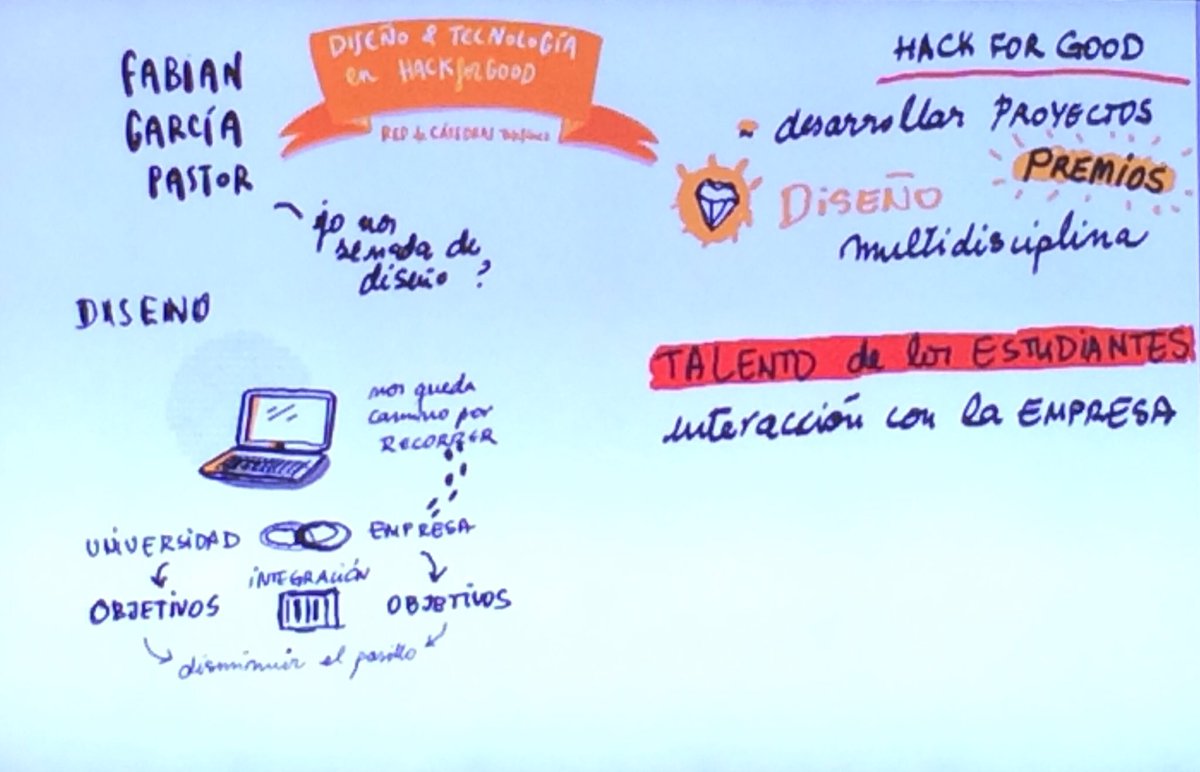 FABIAN
GARCÍA
PASTOR
DISEÑO & TECNOLOGÍA
en HACKforGOOD
RED de CÁTEDRAS Telefónica
de
diseño ?
DISEÑO
nos queda
camino por
RECORRER
UNIVERSIDAD
EMPRESA
INTEGRACIÓN
OBJETIVOS
OBJETIVOS
disminuir el pasillo
HACK FOR GOOD
desarrollar PROYECTOS
PREMIOS
DISEÑO
multidisciplina
TALENTO de los ESTUDIANTES
interacción con la EMPRESA